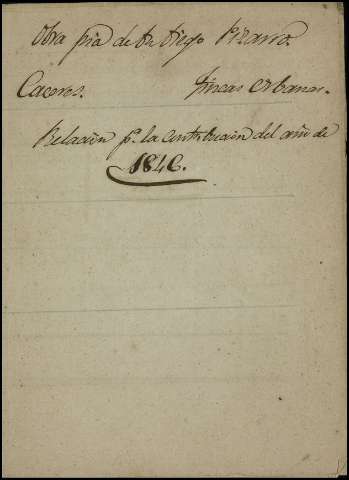 Obra pia de Dn Diego Pizarro.
Caceres. Fincas Urbanas.
Relacion pa. la contribucion del año de
1846.